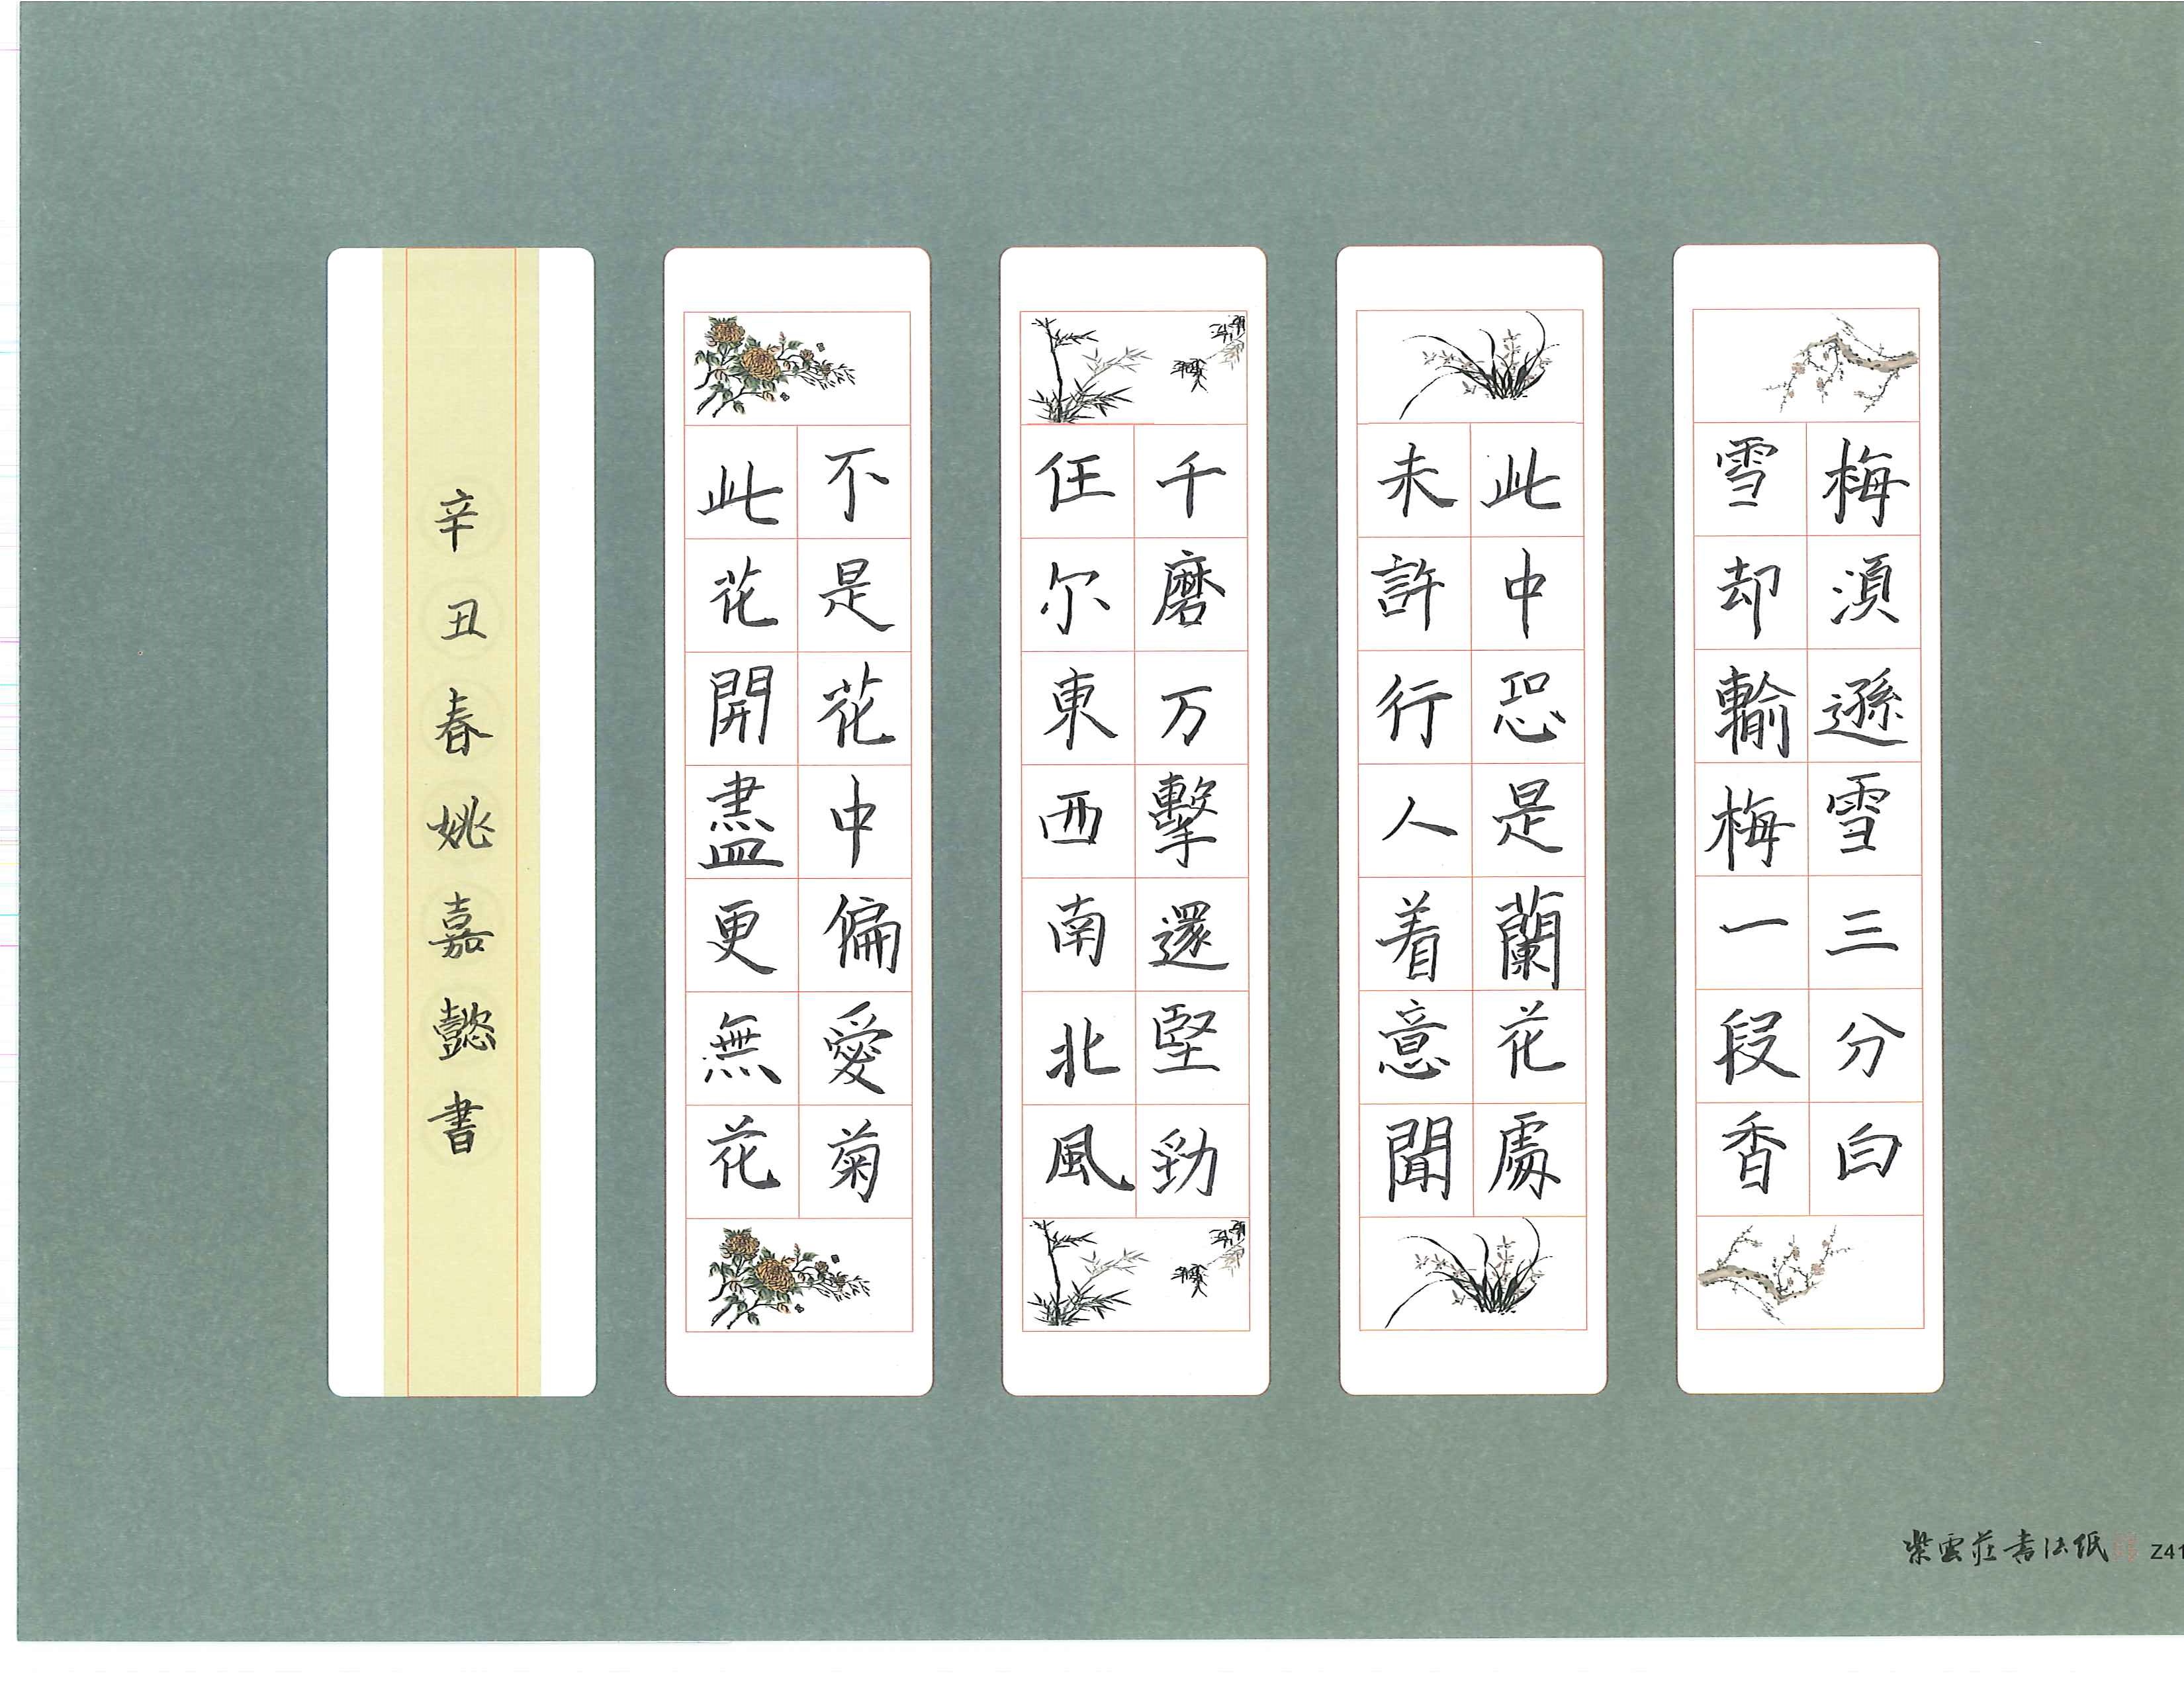 梅湏遜雪三分白
雪却輸梅一段香
此中恐是蘭花處
未許行人着意聞
千磨万擊還堅勁
任尔東西南北風
不是花中偏愛菊
此花開盡更無花
辛丑春姚嘉懿書
紫雲莊書法紙 Z41